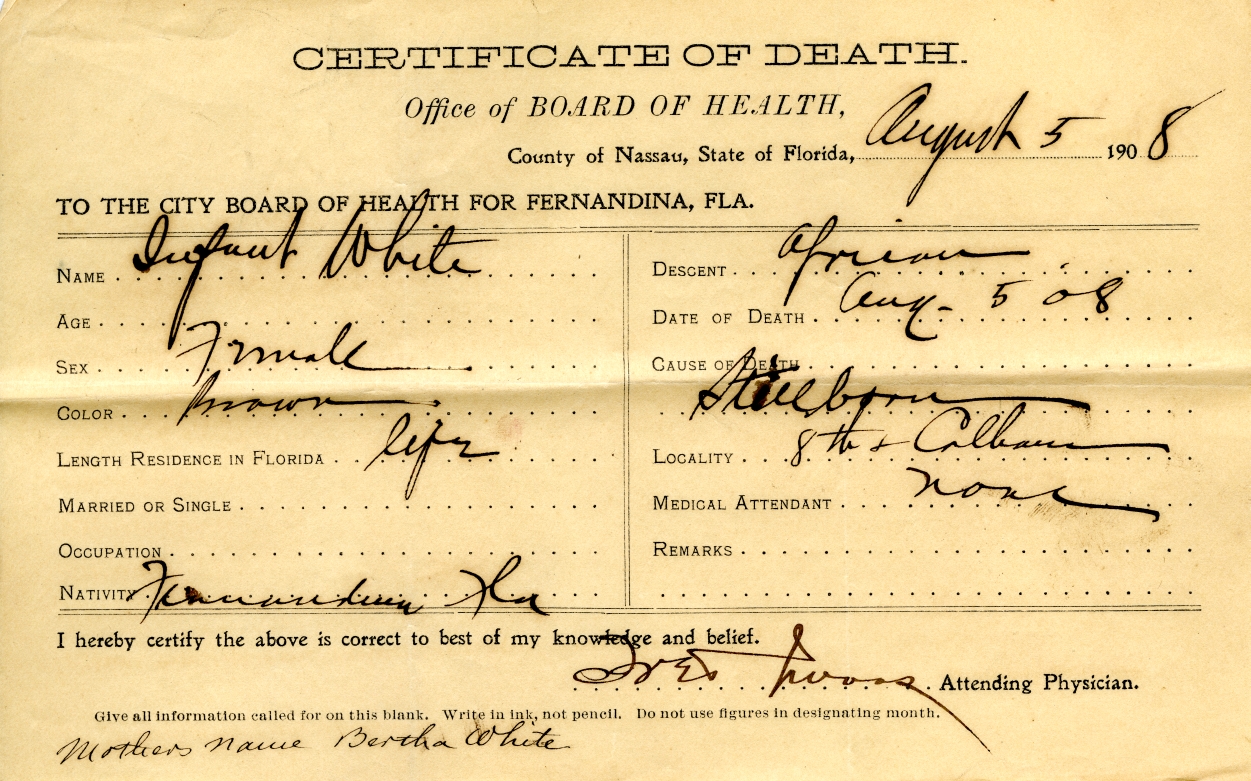 CERTIFICATE OF DEATH.
Office of BOARD OF HEALTH,
County of Nassau, State of Florida, August 5 1908
TO THE CITY BOARD OF HEALTH FOR FERNANDINA, FLA.
NAME Infant White
AGE
SEX Female
COLOR Brown
LENGTH RESIDENCE IN FLORIDA life
MARRIED OR SINGLE
OCCUPATION
NATIVITY Fernandina Fla
DESCENT African
DATE OF DEATH Aug - 5 08
CAUSE OF DEATH
Stillborn
LOCALITY 8th & Calhoun
MEDICAL ATTENDANT none
REMARKS
I hereby certify the above is correct to best of my knowledge and belief.
Attending Physician.
Give all information called for on this blank. Write in ink, not pencil. Do not use figures in designating month.
Mothers name Bertha White